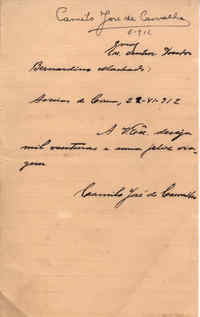 Camilo José de Carvalho
6-912
Exmo
Sr. Doutor
Bernardino Machado:
22-VI-912
A V. Exa. deseja
mil venturas e uma feliz via-
gem
Camilo José de Carvalho